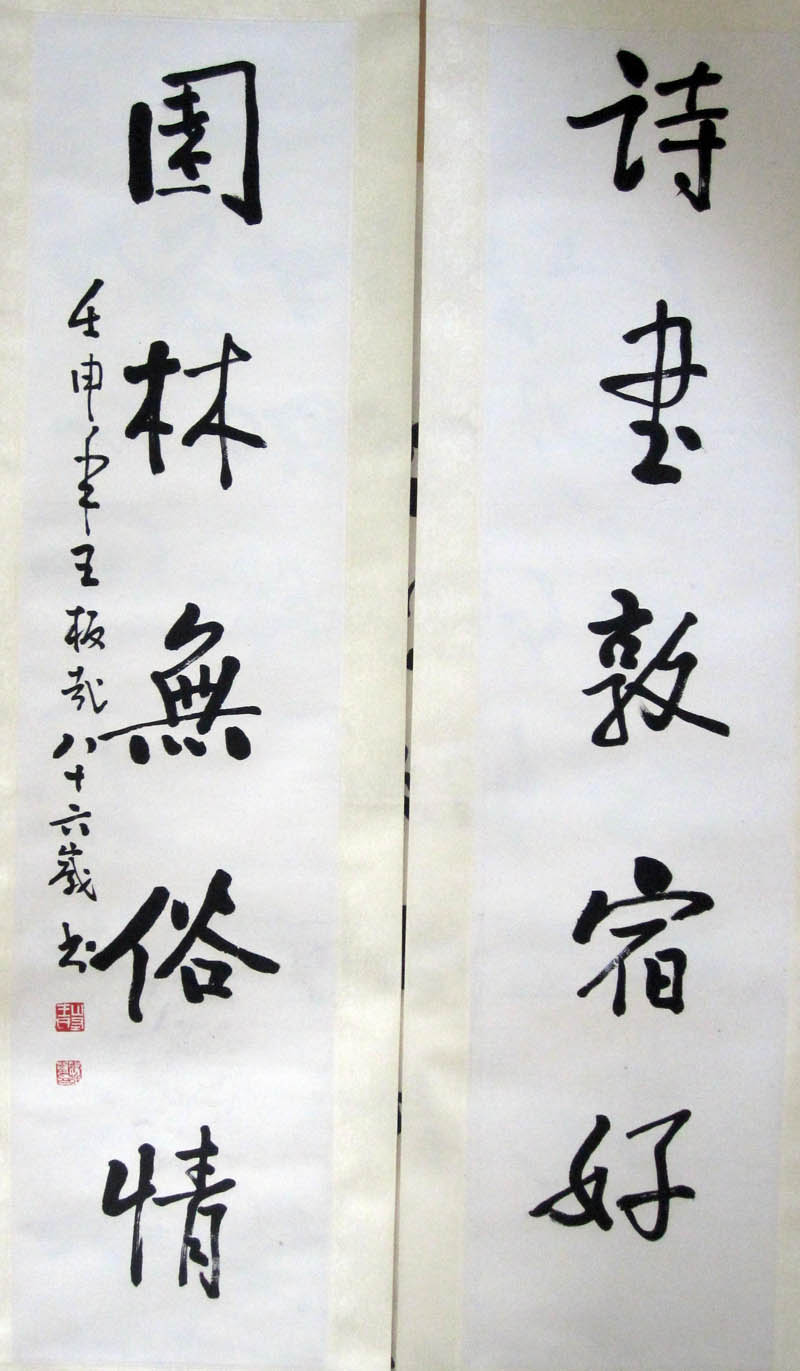 詩書敦宿好
園林無俗情
壬申年王板哉八十六歲书